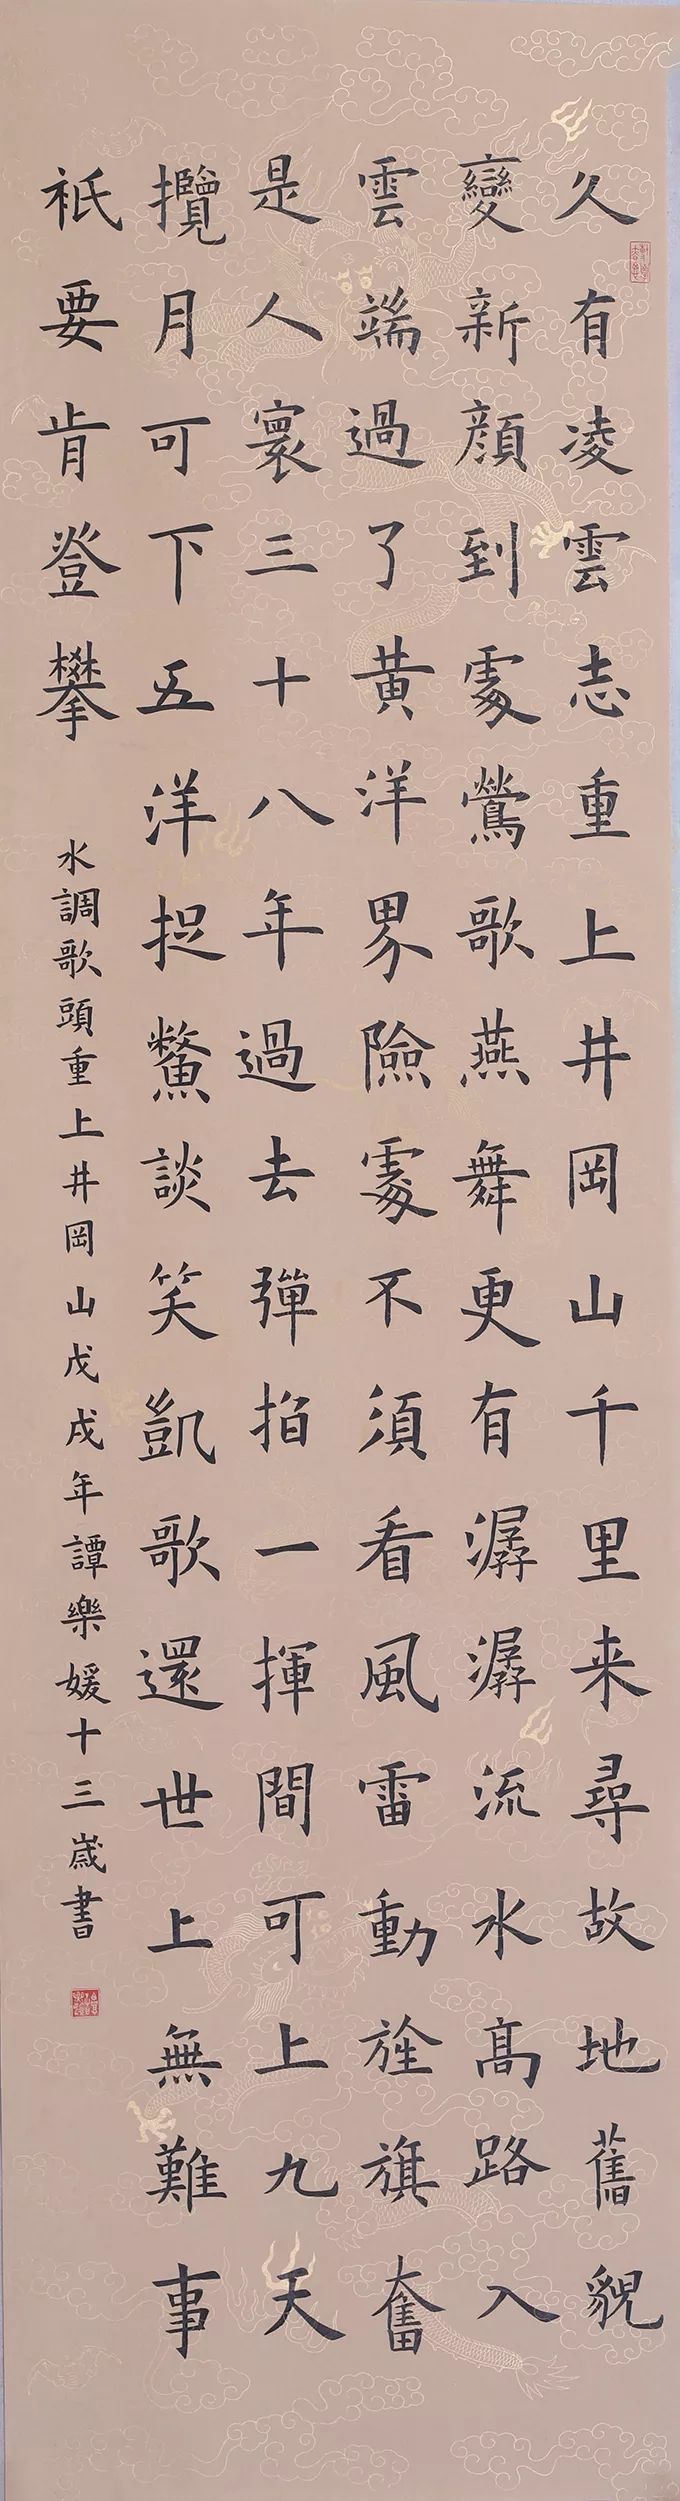 久有凌雲志重上井岡山千里来尋故地舊貌
變新顔到處鶯歌燕舞更有潺潺流水高路入
雲端過了黄洋界險處不須看風雷動旌旗奮
是人寰三十八年過去彈指一揮間可上九天
攬月可下五洋捉鱉談笑凱歌還世上無難事
衹要肯登攀
水調歌頭重上井岡山戊戌年譚樂媛十三歲書